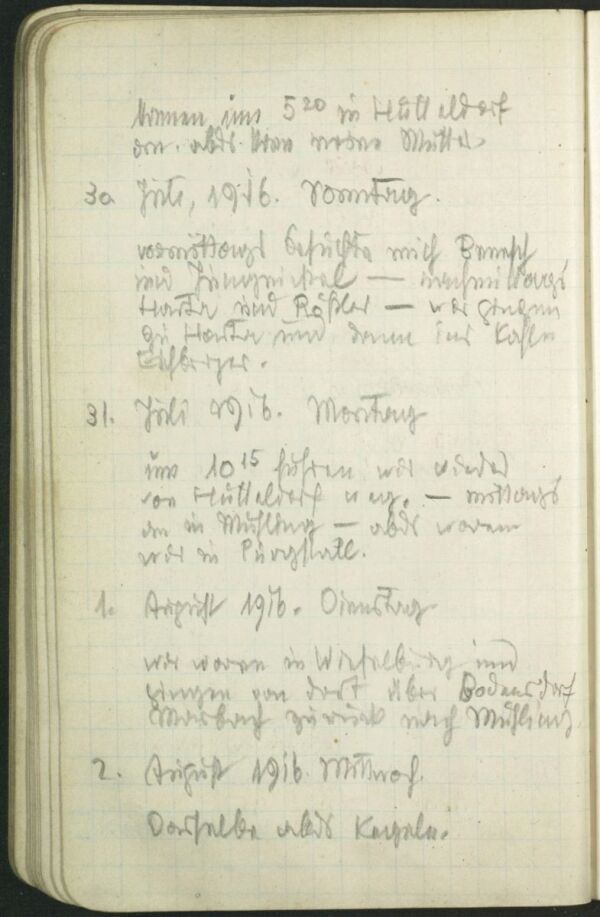 kamen um 5 20 in Hütteldorf
an. abds. kam meine Mutter
30 Juli, 1916. Sonntag.
vormittags besuchte mich Benesch
und Jungnickel — nachmittags
Harta und Rößler — wir gingen
zu Harta und dann ins Kaffe
Eichberger.
31. Juli 1916. Montag
um 10 15 fuhren wir wieder
von Hütteldorf weg. — mittags
an in Mühling — abds waren
wir in Purgstall.
1. August 1916. Dienstag.
wir waren in Wieselburg und
gingen von dort über Bodensdorf
Marbach zurück nach Mühling.
2. August 1916. Mittwoch.
Dasselbe abds Kegeln.